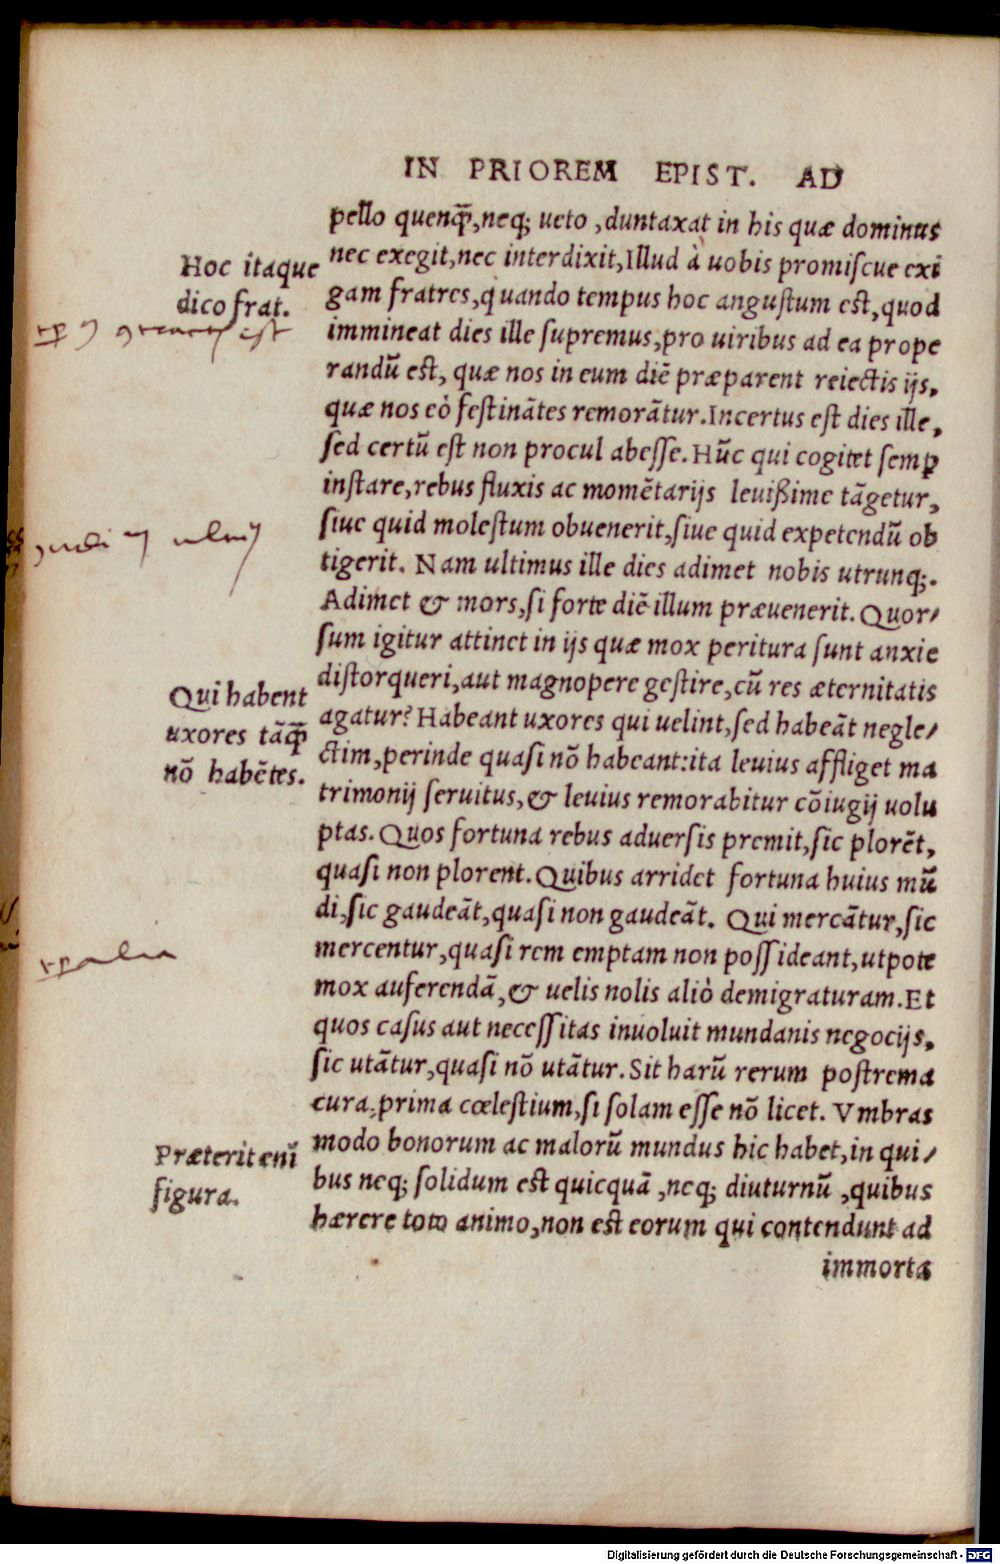 IN PRIOREM EPIST. AD
pello quenq̃, neq; ueto, duntaxat in his quæ dominus
Hoc itaque
dico frat.
nec exegit, nec interdixit, Illud à uobis promiſcue exi
gam fratres, quando tempus hoc anguſtum eſt, quod
immineat dies ille ſupremus, pro uiribus ad ea prope
randũ eſt, quæ nos in eum diẽ præparent reiectis ijs,
quæ nos eò feſtinãtes remorãtur. Incertus eſt dies ille,
ſed certũ eſt non procul abeſſe. Hũc qui cogitet ſemꝑ
inſtare, rebus fluxis ac momẽtarijs leuißime tãgetur,
ſiue quid moleſtum obuenerit, ſiue quid expetendũ ob
tigerit. Nam ultimus ille dies adimet nobis utrunq;.
Adimet & mors, ſi forte diẽ illum præuenerit. Quor/
ſum igitur attinet in ijs quæ mox peritura ſunt anxie
diſtorqueri, aut magnopere geſtire, cũ res æternitatis
Qui habent
uxores tãq̃
nõ habẽtes.
agatur? Habeant uxores qui uelint, ſed habeãt negle/
ctim, perinde quaſi nõ habeant: ita leuius affliget ma
trimonij ſeruitus, & leuius remorabitur cõiugij uolu
ptas. Quos fortuna rebus aduerſis premit, ſic plorẽt,
quaſi non plorent. Quibus arridet fortuna huius mũ
di, ſic gaudeãt, quaſi non gaudeãt. Qui mercãtur, ſic
mercentur, quaſi rem emptam non poſſideant, utpote
mox auferendã, & uelis nolis aliò demigraturam. Et
quos caſus aut neceſſitas inuoluit mundanis negocijs,
ſic utãtur, quaſi nõ utãtur. Sit harũ rerum poſtrema
cura, prima cœleſtium, ſi ſolam eſſe nõ licet. Vmbras
Præterit enĩ
figura.
modo bonorum ac malorũ mundus hic habet, in qui/
bus neq; ſolidum eſt quicquã, neq; diuturnũ, quibus
hærere toto animo, non eſt eorum qui contendunt ad
immorta
Digitalisierung gefördert durch die Deutsche Forschungsgemeinschaft - DFG